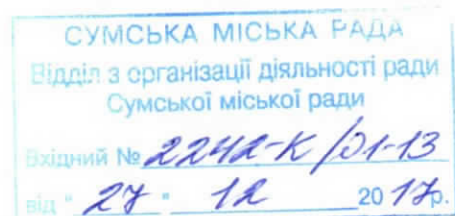 СУМСЬКА МІСЬКА РАДА
Відділ з організації діяльності ради
Сумської міської ради
Вхідний № 2242-К/01-13
від "27" 12 2017р.